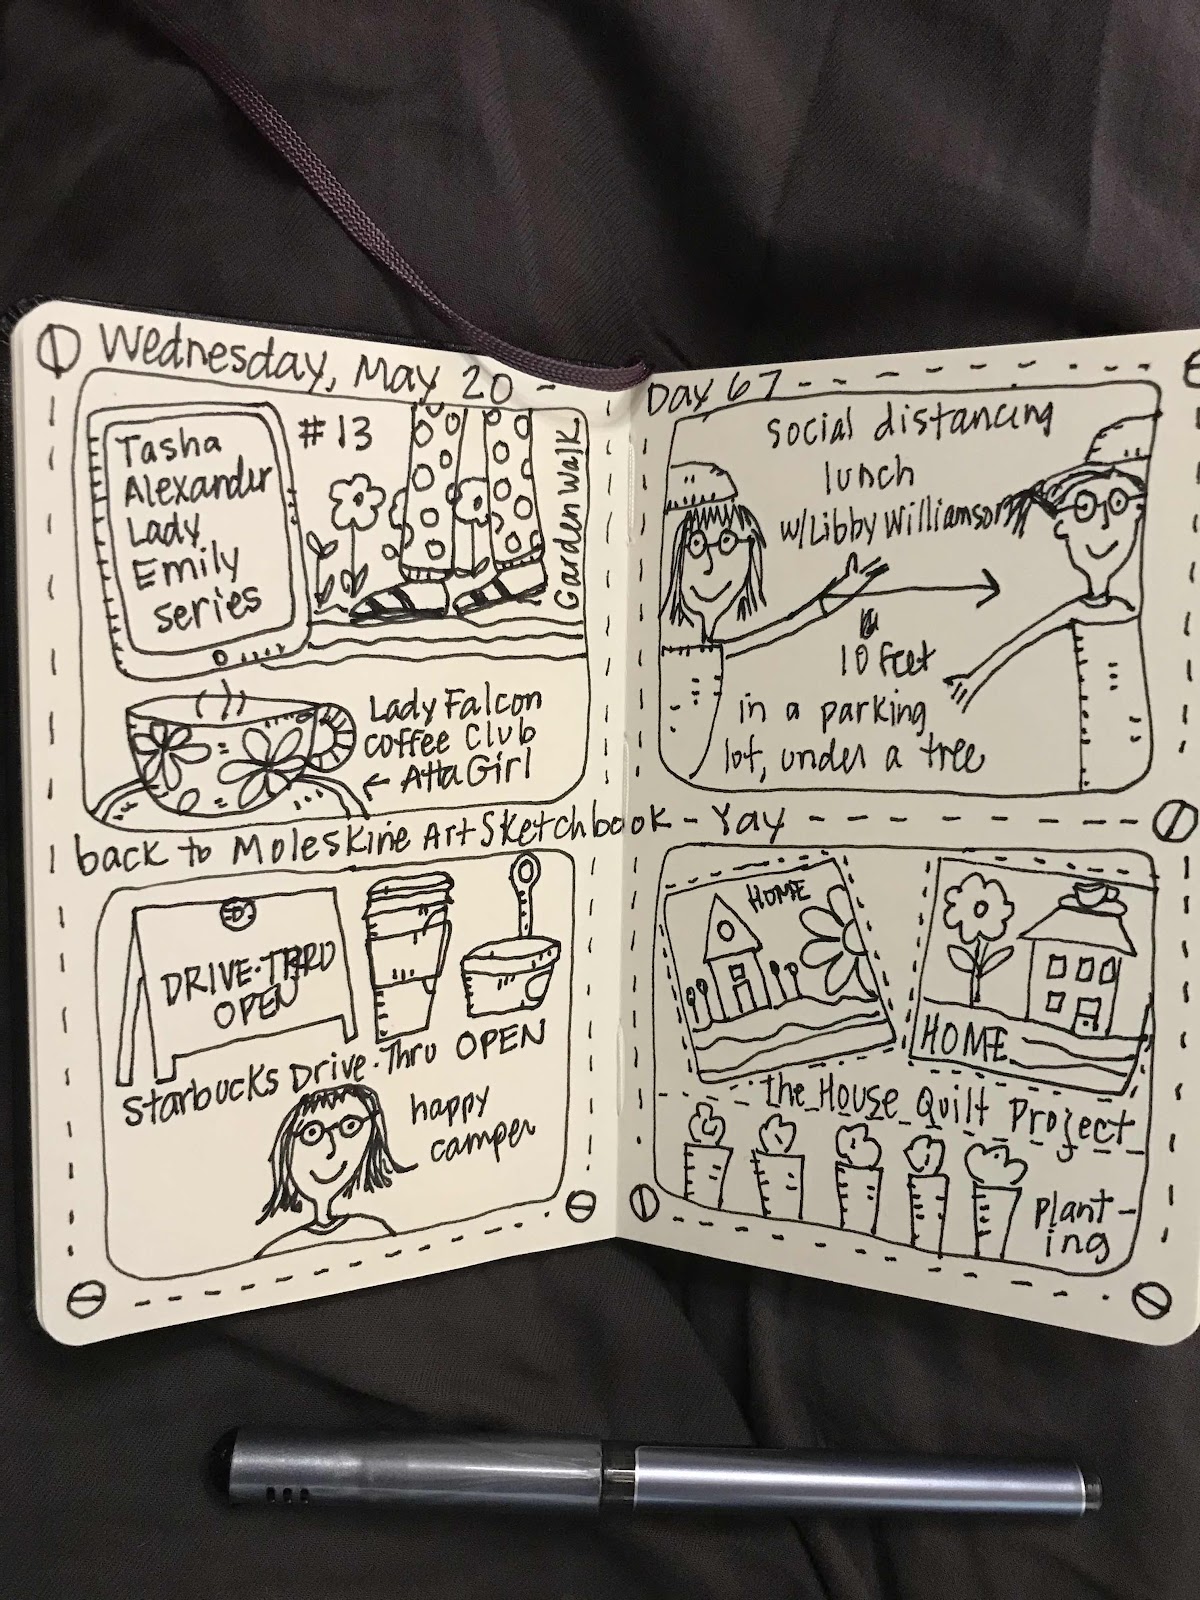 Wednesday, May 20 - Day 67
Tasha
Alexander
Lady
Emily
series
#13
Garden Walk
Lady Falcon
Coffee Club
← Atta Girl
social distancing
lunch
w/Libby Williamson
10 feet
in a parking
lot, under a tree
back to Moleskine Art Sketchbook - Yay
DRIVE·THRU
OPEN
Starbucks Drive·Thru OPEN
happy
camper
HOME
HOME
the House Quilt Project
plant-
ing